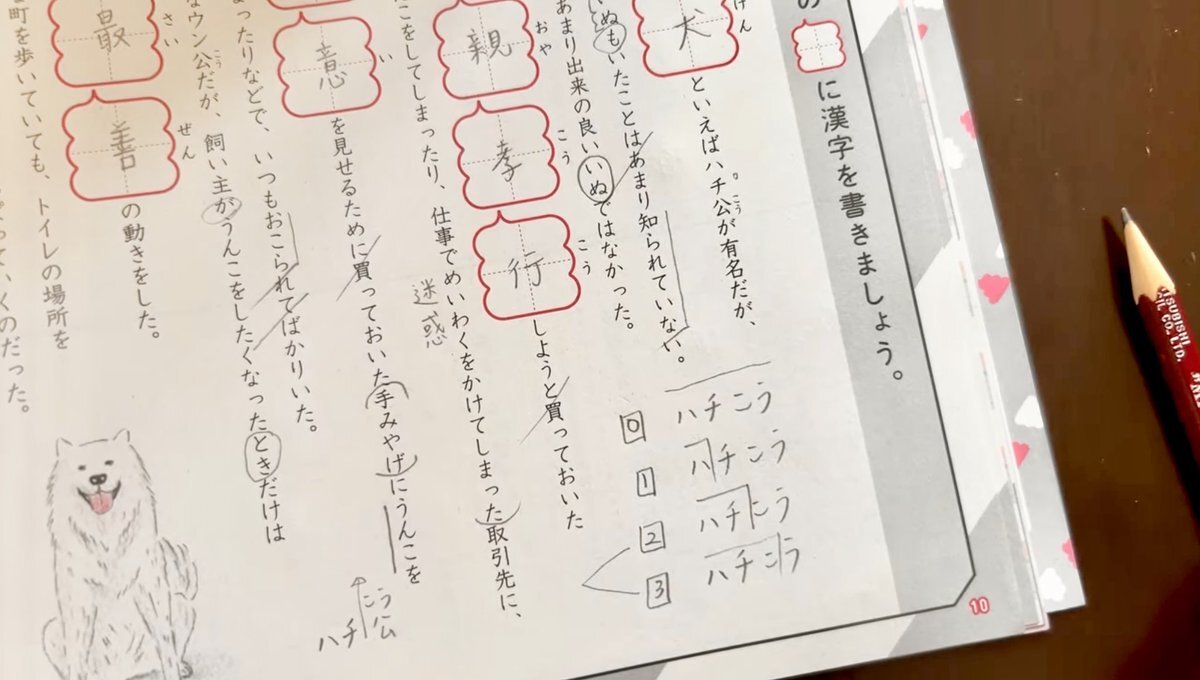 の□に漢字を書きましょう。
犬
けん
といえばハチ公が有名だが、
こう
ぬもいたことはあまり知られていない。
あまり出来の良いいぬではなかった。
親孝行しようと買っておいた
おや
こう
こう
こをしてしまったり、仕事でめいわくをかけてしまった取引先に、
迷惑
意を見せるために買っておいた手みやげにうんこを
い
ったりなどで、いつもおこられてばかりいた。
なウン公だが、飼い主がうんこをしたくなったときだけは
こう
最善の動きをした。
さい
ぜん
町を歩いていても、トイレの場所を
ていくのだった。
ハチこう
0 ハチこう
1 ハチこう
2 ハチこう
3
ハチこう
公
10
MITSUBISHI
PENCIL CO.LTD.